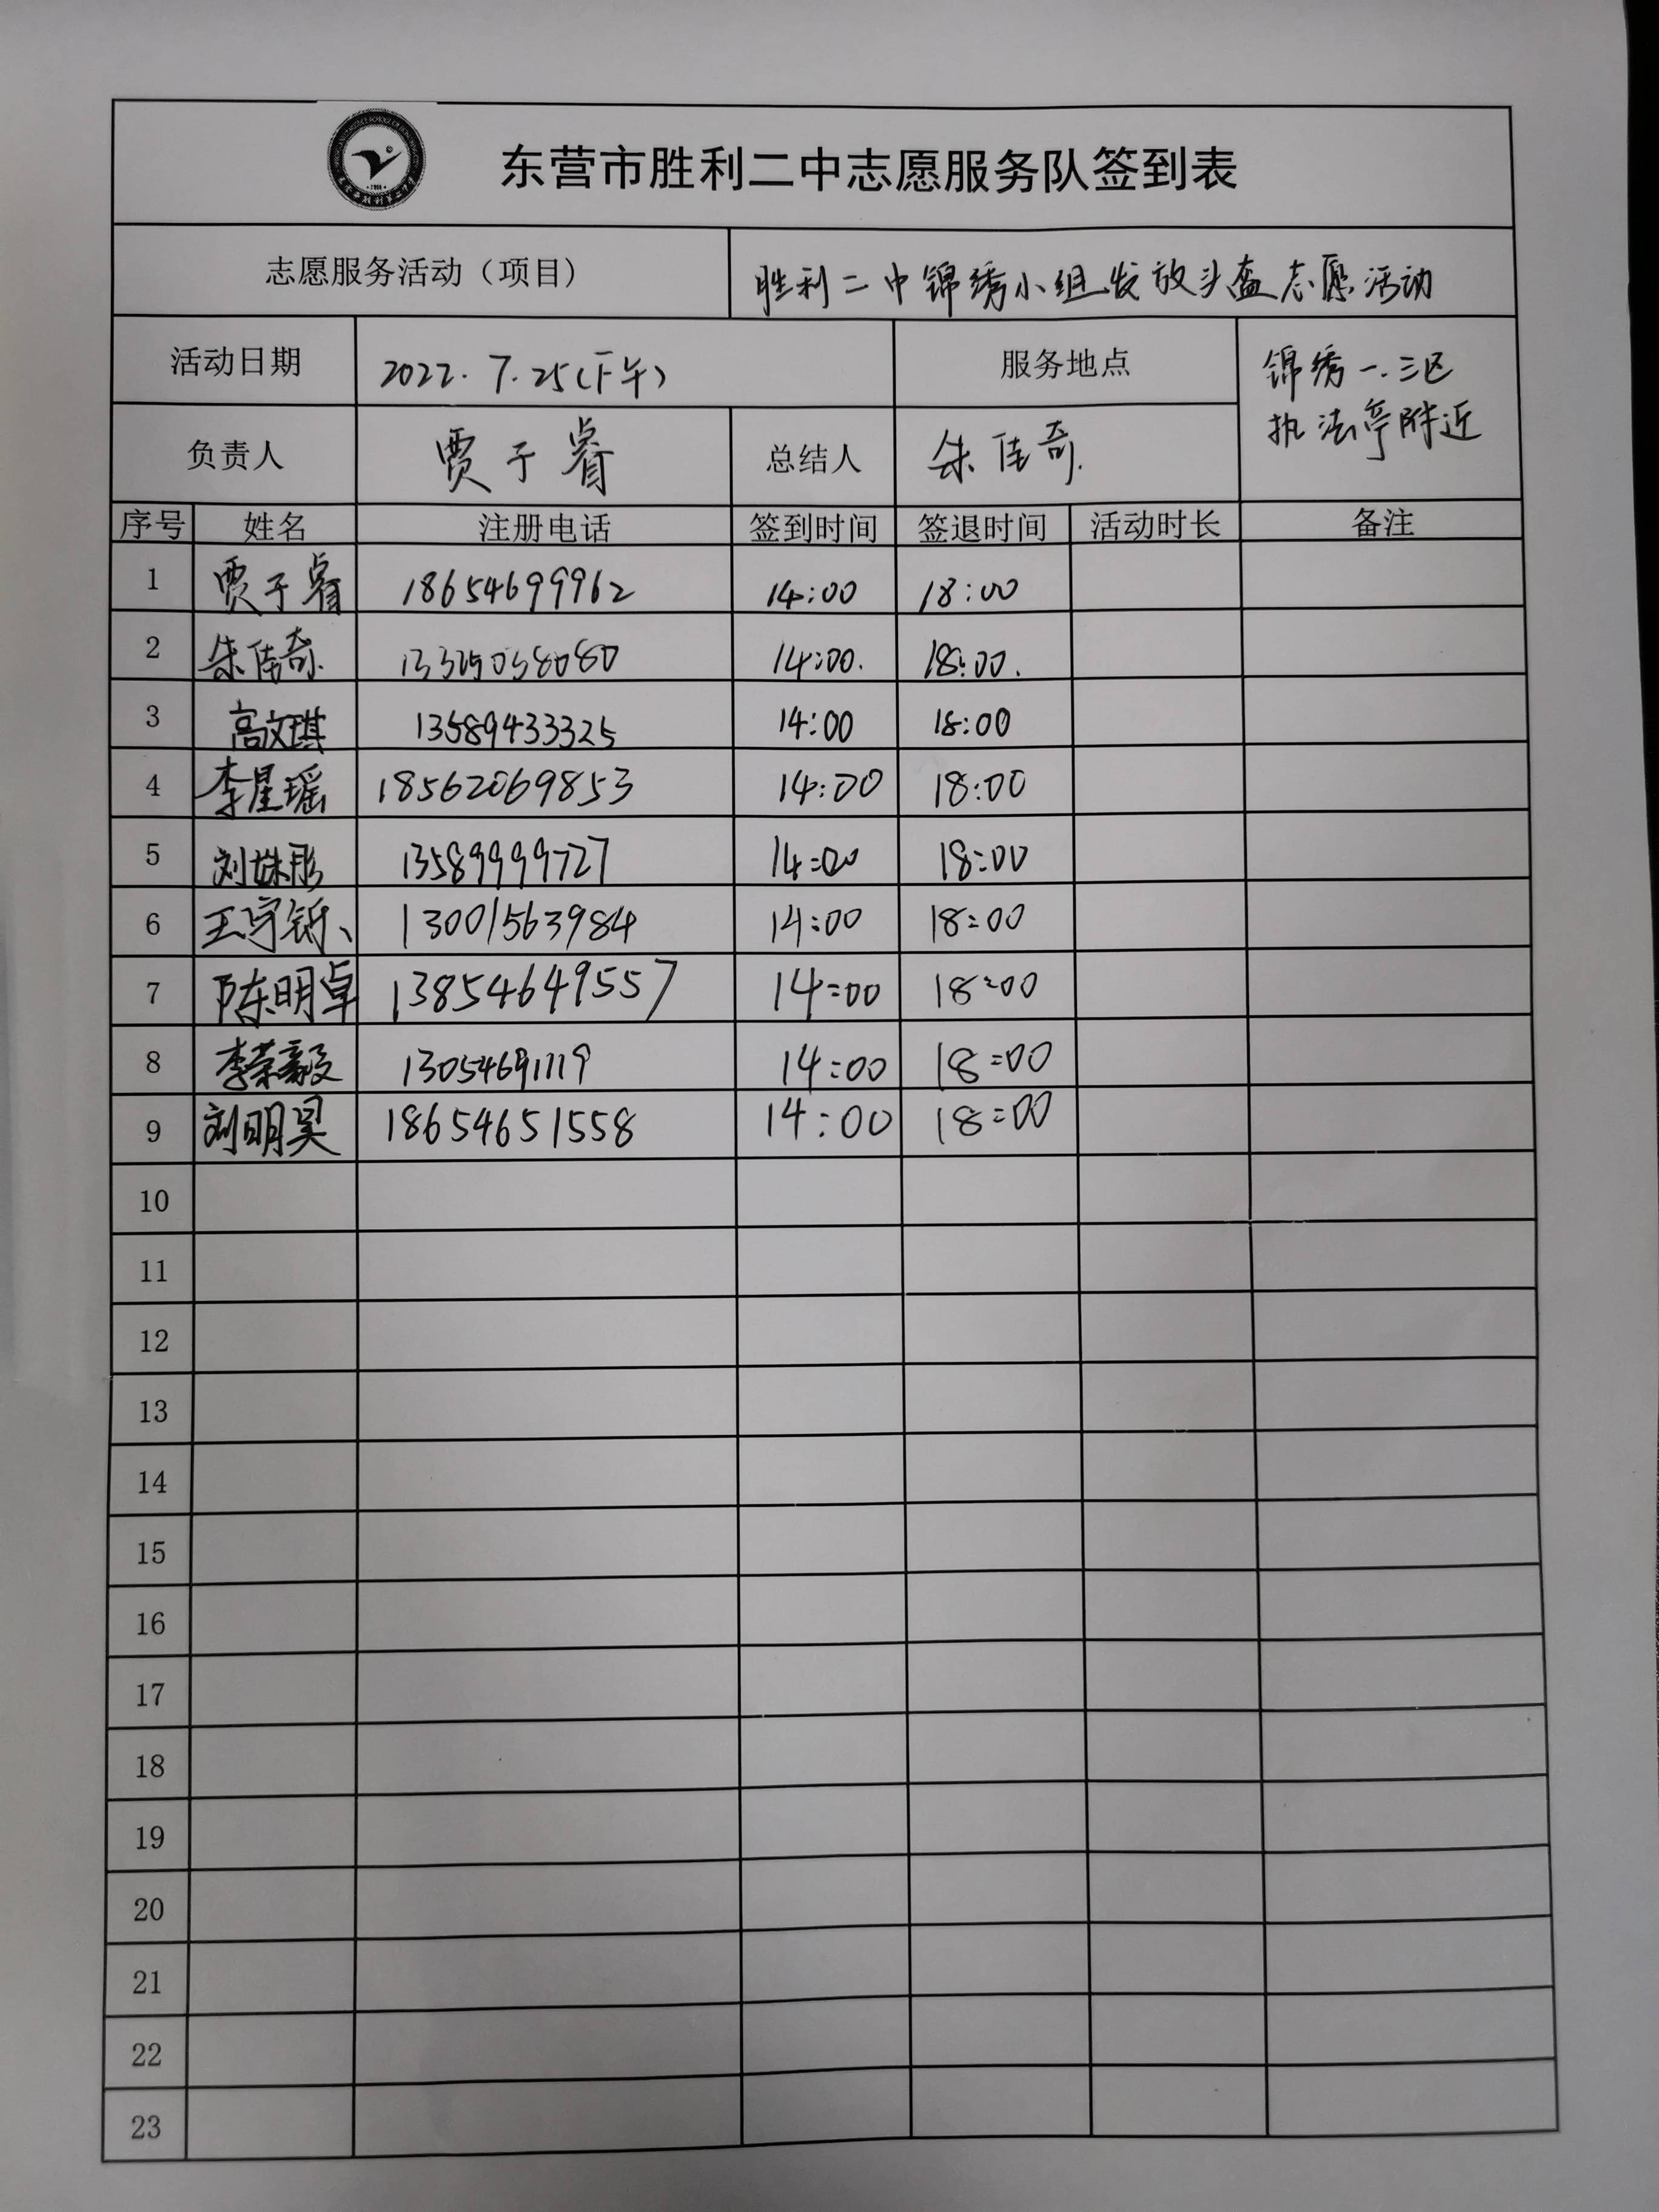 东营市胜利二中志愿服务队签到表
志愿服务活动（项目） 胜利二中锦绣小组发放头盔志愿活动
活动日期 2022.7.25(下午) 服务地点 锦绣一.三区
执法亭附近
负责人 贾于睿 总结人 朱佳奇.
序号 姓名 注册电话 签到时间 签退时间 活动时长 备注
1 贾于睿 18654699962 14:00 18:00
2 朱佳奇. 14:00. 18:00.
3 高文琪 13589433325 14:00 18:00
4 李星瑶 18562069853 14:00 18:00
5 刘姝彤 13589999727 14:00 18:00
6 王宇铄、 13001563984 14:00 18:00
7 陈明卓 13854649557 14:00 18:00
8 李荣毅 13054691119 14:00 18:00
9 刘明昊 18654651558 14:00 18:00
10
11
12
13
14
15
16
17
18
19
20
21
22
23